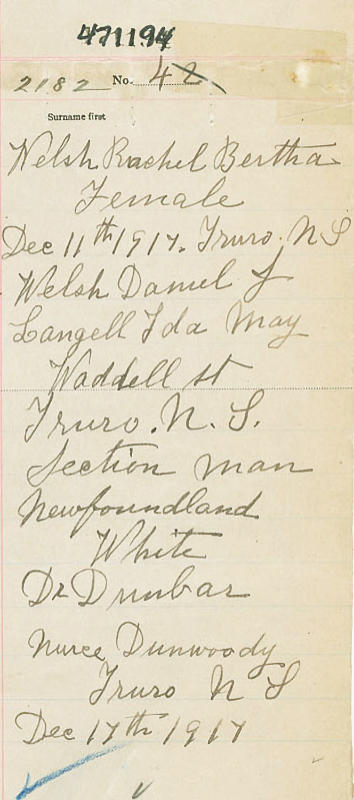 471194
2182 No. 42
Surname first
Welsh Rachel Bertha
Female
Dec 11th 1917. Truro, N S
Welsh Daniel J
Langell Ida May
Waddell st
Truro. N. S.
Section man
Newfoundland
White
Dr Dunbar
Nurce Dunwoody
Truro N S
Dec 17th 1917